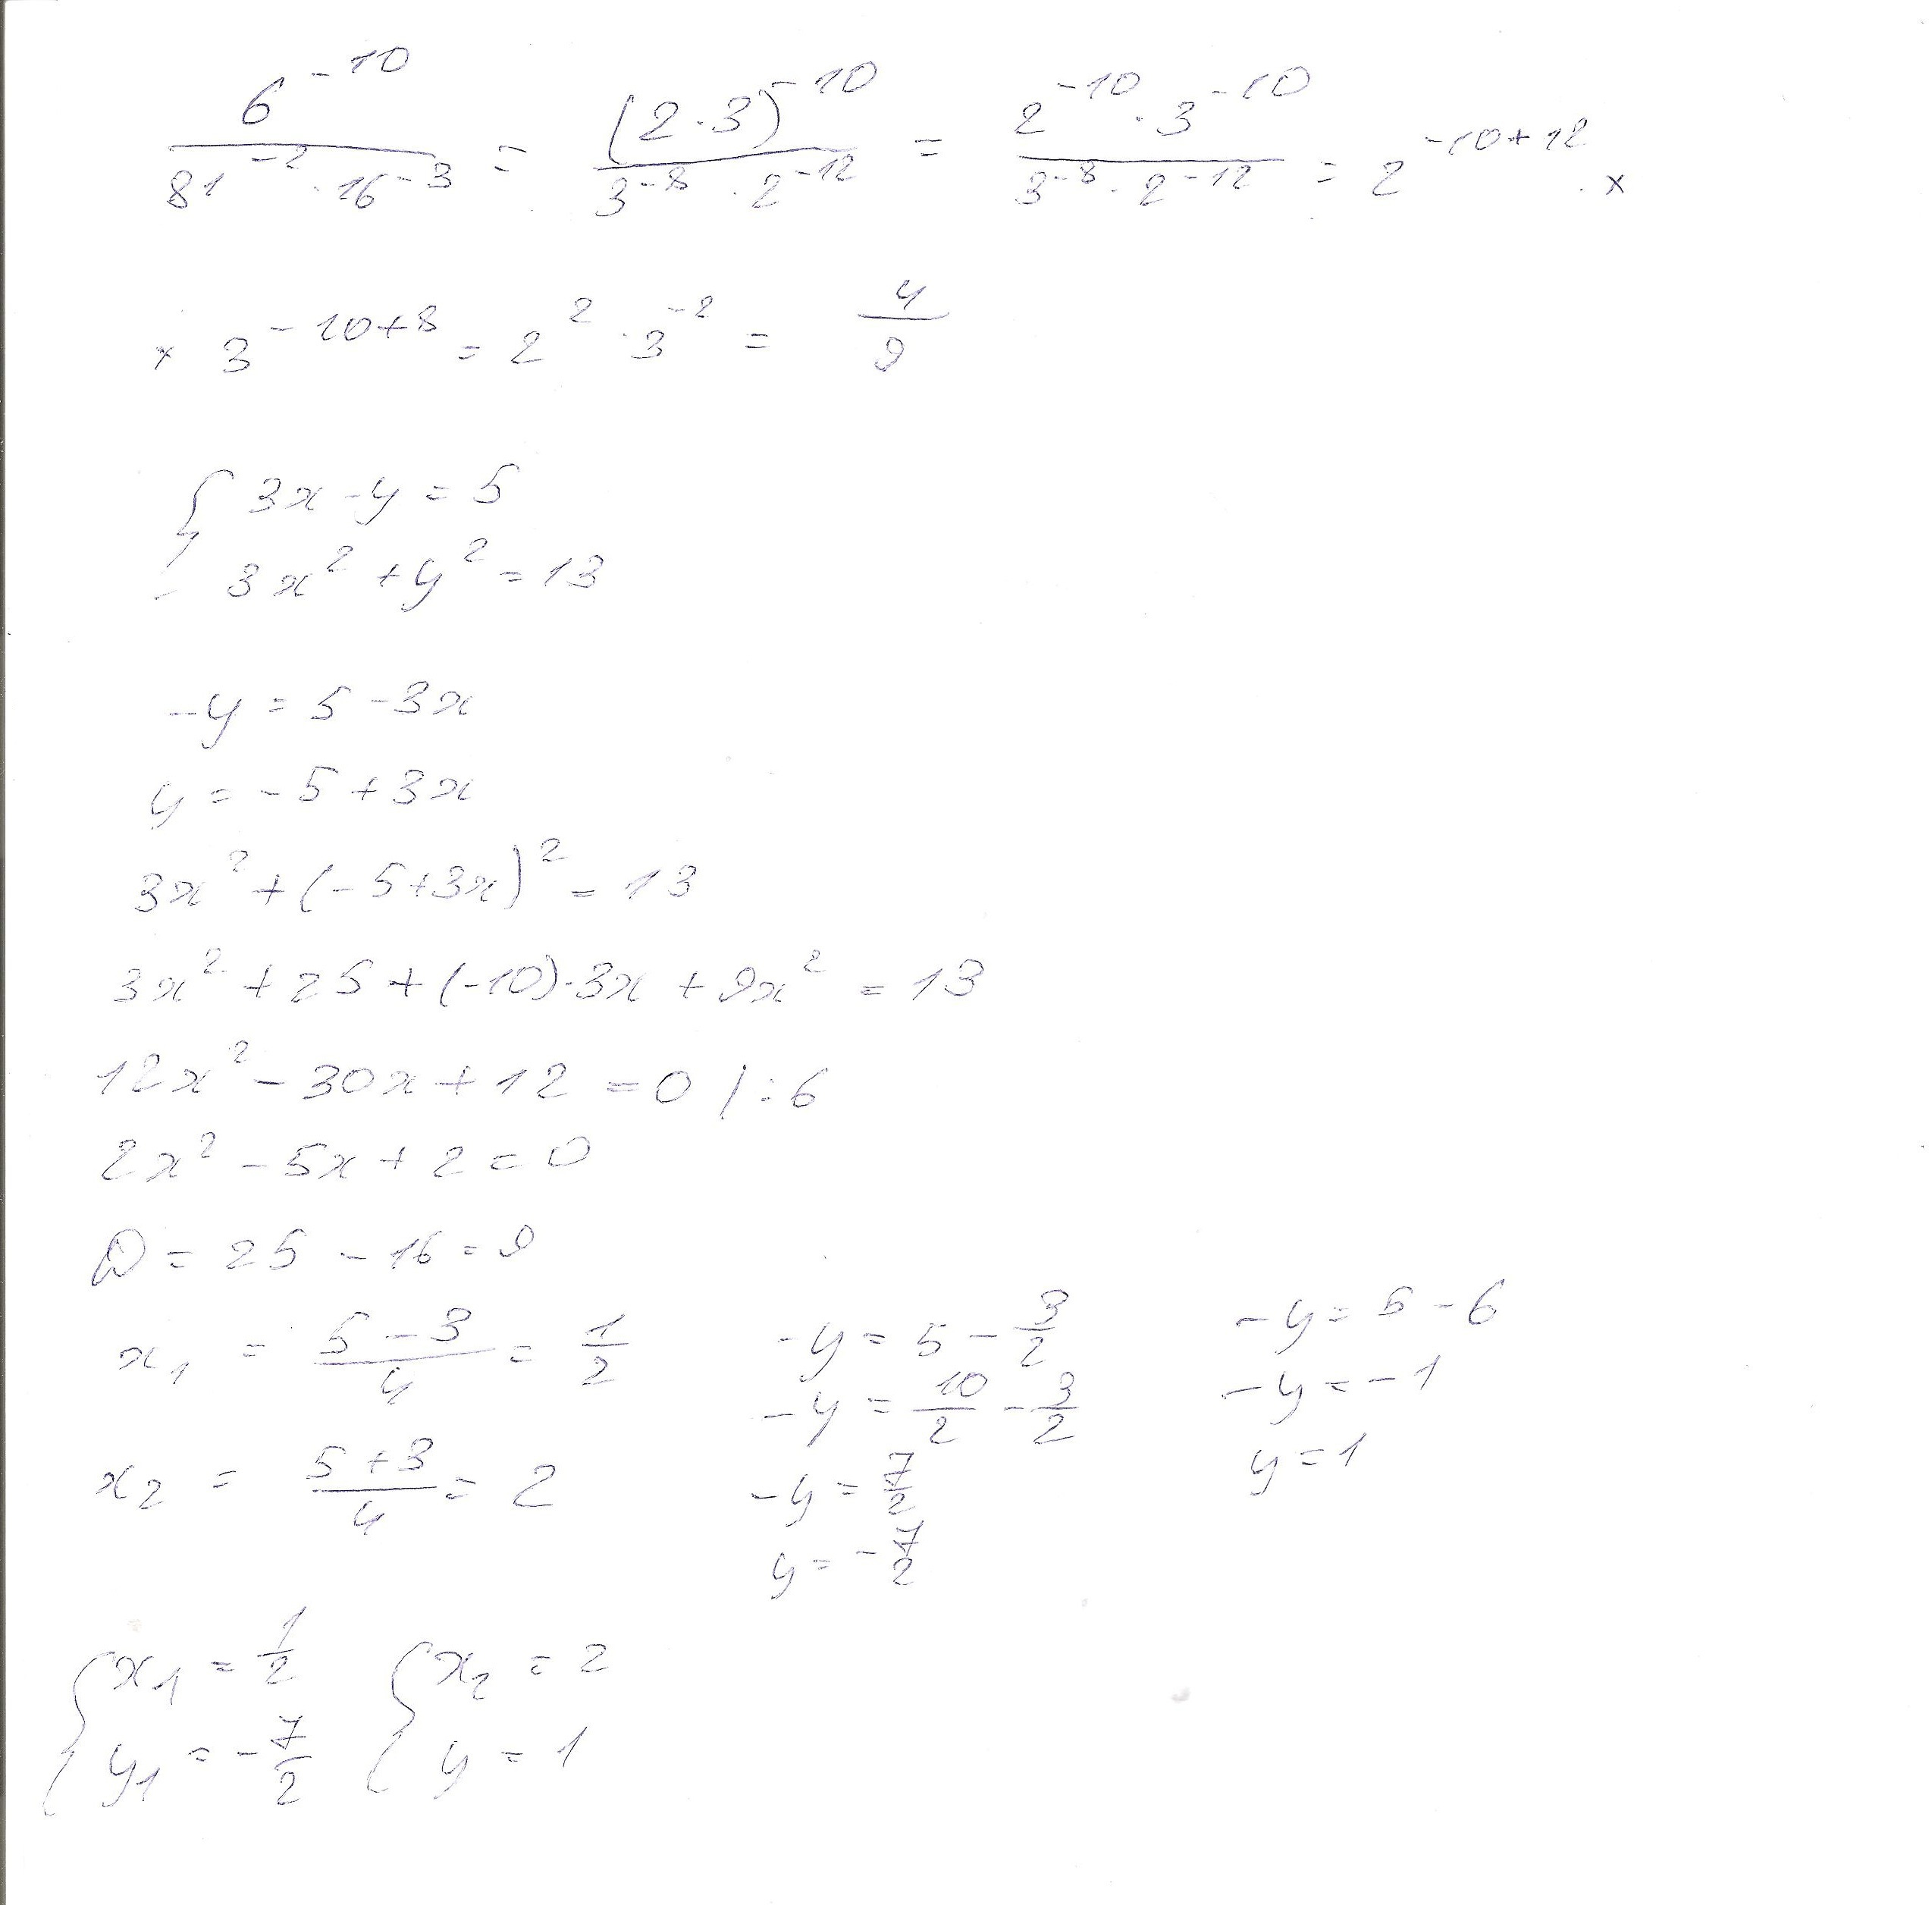 6^-10 / (81^-2 · 16^-3) = (2·3)^-10 / (3^-8 · 2^-12) = (2^-10 · 3^-10) / (3^-8 · 2^-12) = 2^-10+12 · ×
× 3^-10+8 = 2^2 · 3^-2 = 4/9
{ 3x - y = 5
3x² + y² = 13
-y = 5 - 3x
y = -5 + 3x
3x² + (-5+3x)² = 13
3x² + 25 + (-10)·3x + 9x² = 13
12x² - 30x + 12 = 0 /:6
2x² - 5x + 2 = 0
D = 25 - 16 = 9
x₁ = (5-3)/4 = 1/2
x₂ = (5+3)/4 = 2
-y = 5 - 3/2
-y = 10/2 - 3/2
-y = 7/2
y = -7/2
-y = 5 - 6
-y = -1
y = 1
{ x₁ = 1/2 { x₂ = 2
y₁ = -7/2 y = 1